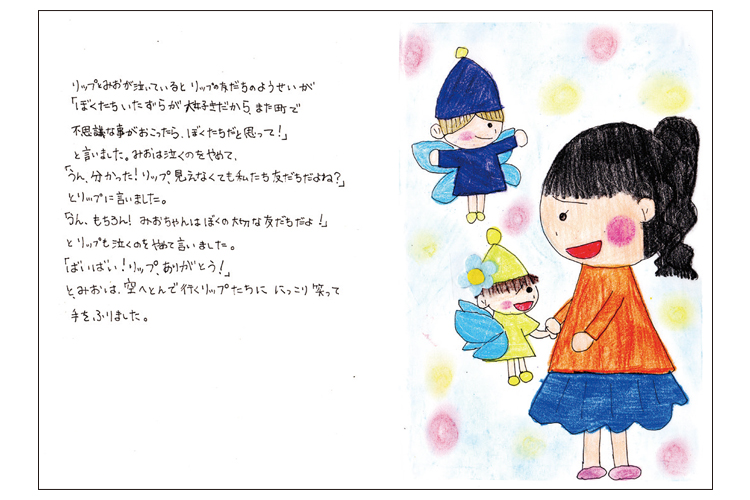 リップとみおが泣いていると リップの友だちのようせいが
「ぼくたちいたずらが大好きだから、また町で
不思議な事がおこったら、ぼくたちだと思って!」
と言いました。みおは泣くのをやめて、
「うん、分かった!リップ、見えなくても私たち友だちだよね?」
とリップに言いました。
「うん、もちろん! みおちゃんはぼくの大切な友だちだよ!」
とリップも泣くのをやめて言いました。
「ばいばい!リップ、ありがとう!」
と、みおは、空へとんで行くリップたちに にっこり笑って
手をふりました。